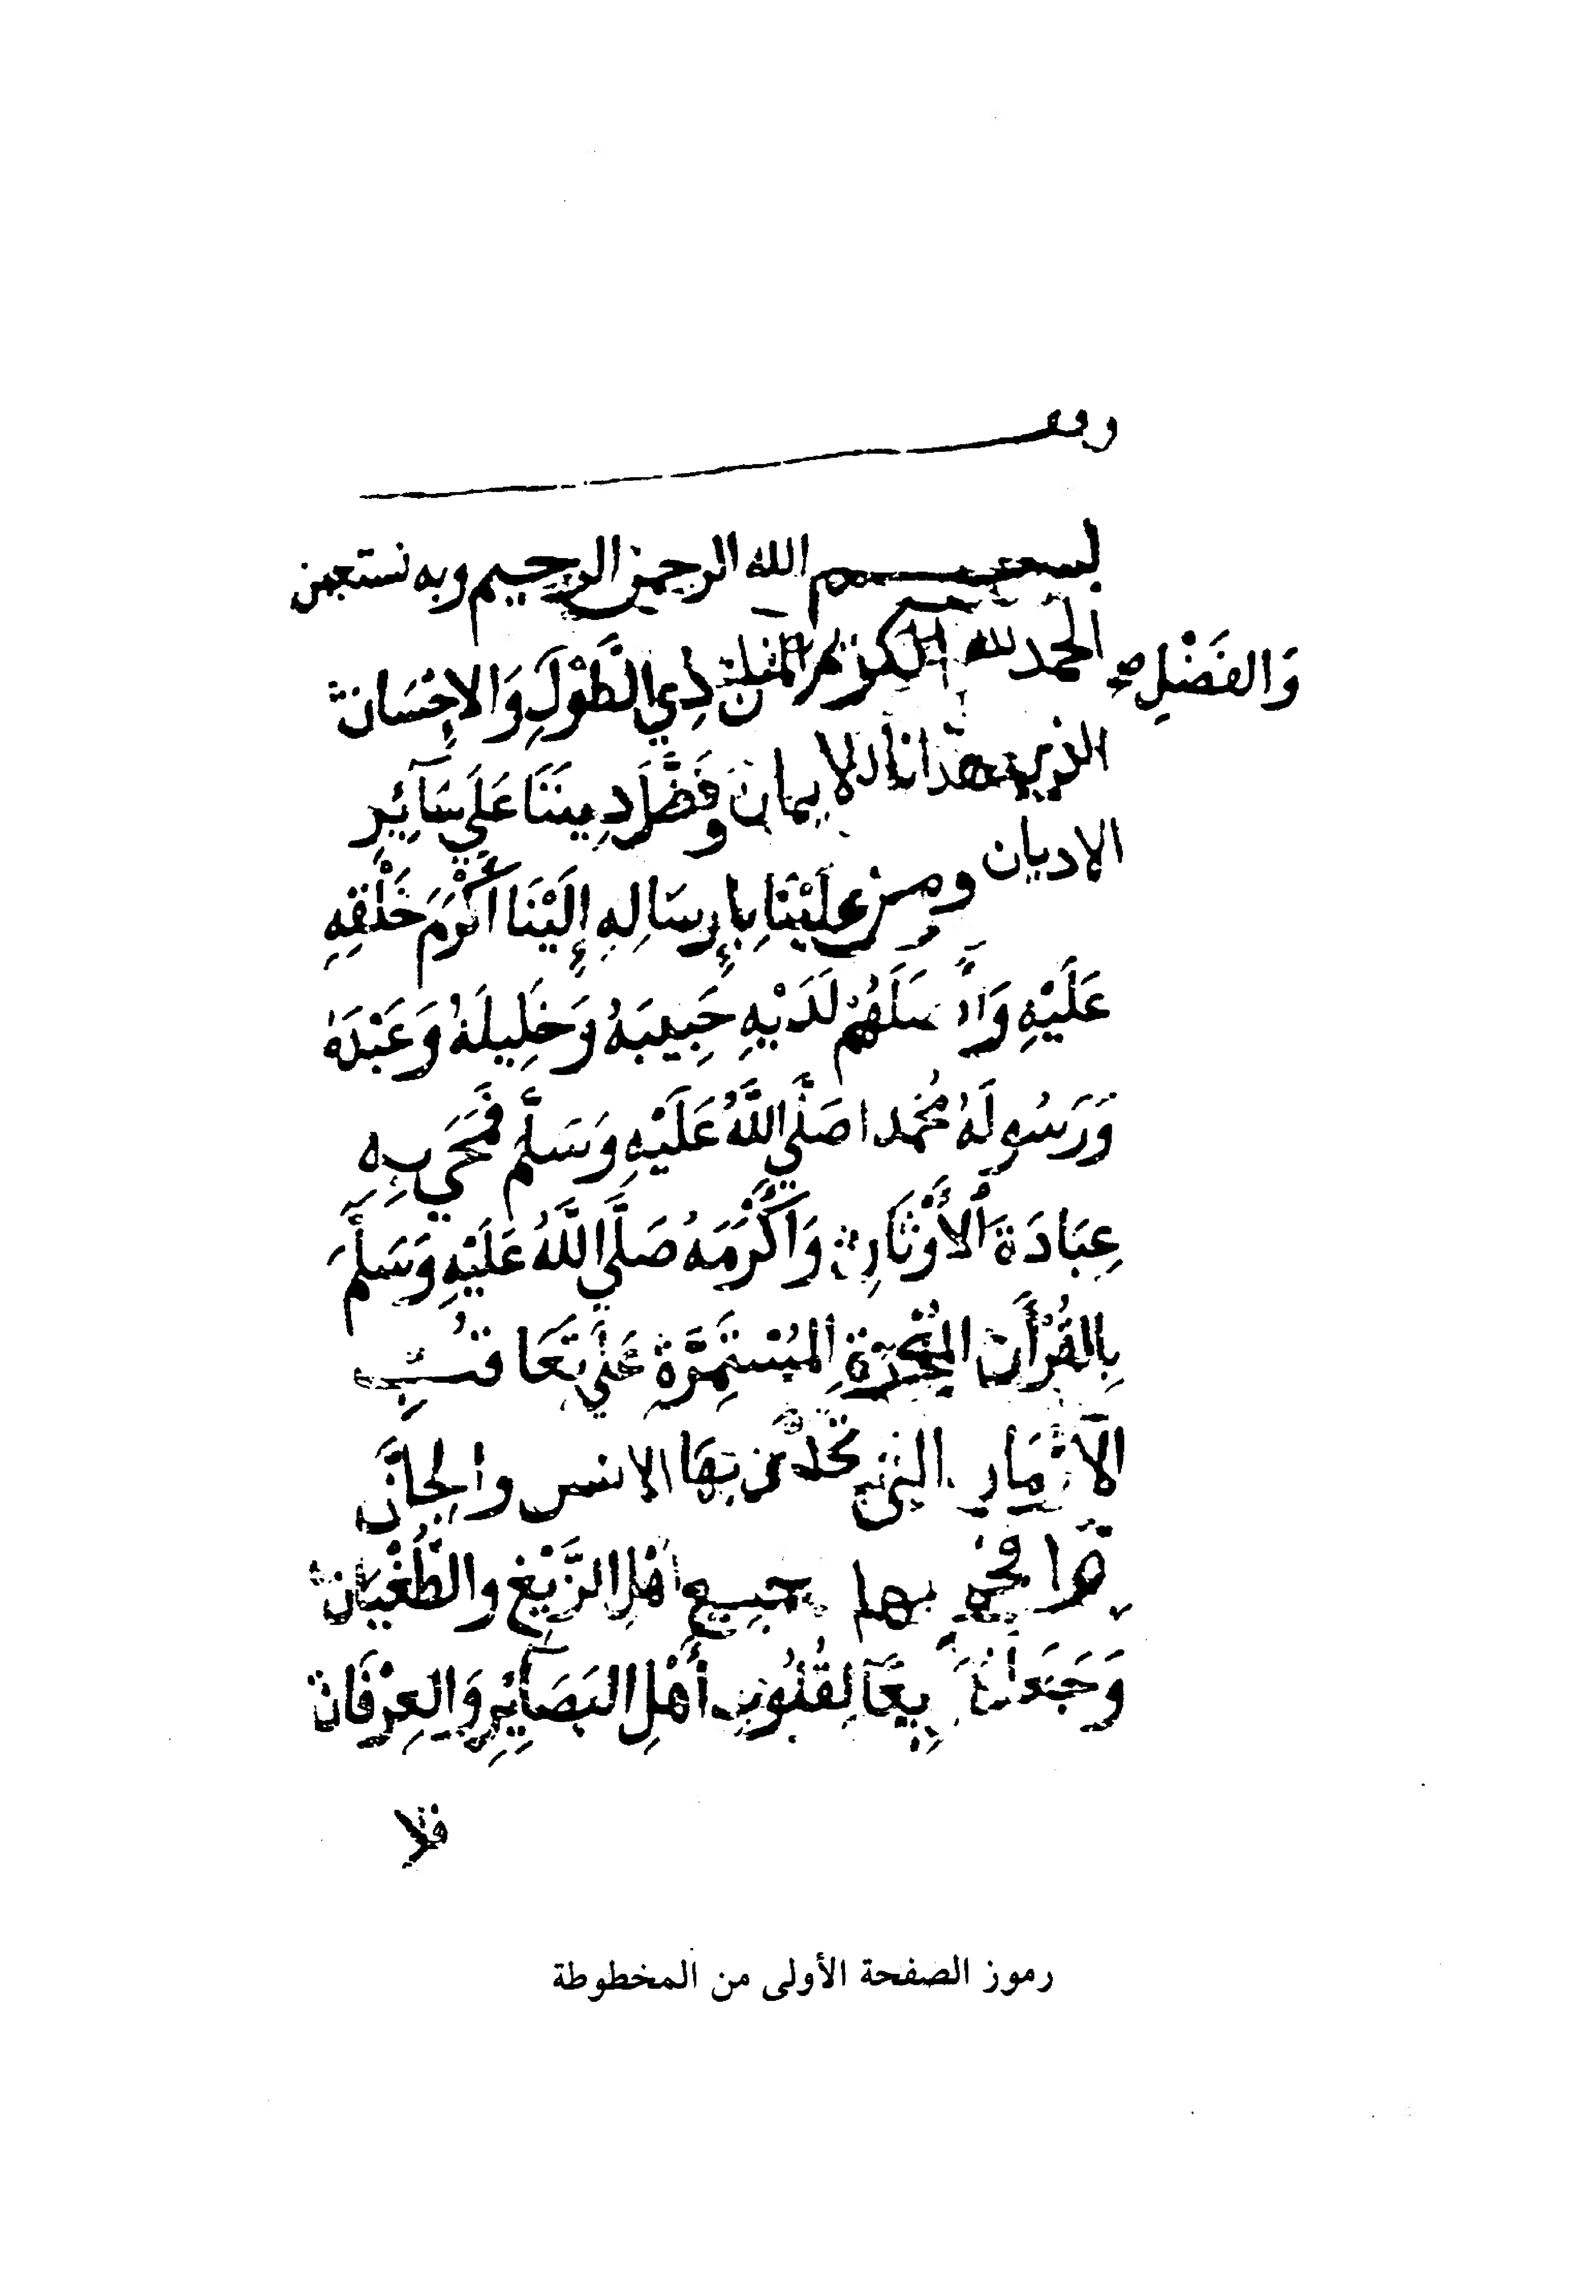 وقف
بسم الله الرحمن الرحيم وبه نستعين
الحمد لله الكريم المنان ذي الطَّوْلِ وَالاِحْسَان
وَالفَضْلِ صح
الذي هدانا للايمان وَفَضَّلَ دِينَنَا عَلَي سَآئِرِ
الاديان ومن عَلَيْنَا بِإِرسَالِهِ إِلَيْنَا أَكْرَمَ خَلْقِهِ
عَلَيْهِ وَأَ سَلَهُمْ لَدَيْهِ حَبِيبَهُ وَخَلِيلَهُ وَعَبْدَهُ
وَرَسُولَهُ مُحَمدا صَلَّي اللَّهُ عَلَيْهِ وَسَلَّمَ فَمَحَي بِهِ
عِبَادَةَ الأَوْثَانِ وَأَكْرَمَهُ صَلَّي اللَّهُ عَلَيْهِ وَسَلَّمَ
بِالقُرْأَنِ المُعْجِزَةِ المُسْتَمِرَّةِ عَلَي تَعَاقُبِ
الأَزْمَانِ التي تحدى بِهَا الانس والجَانَّ
وَجَعَلَهُ رَبِيعًا لِقُلُوبِ أَهْلِ البَصَآئِرِ وَالعِرْفَان
فلا
رموز الصفحة الأولى من المخطوطة